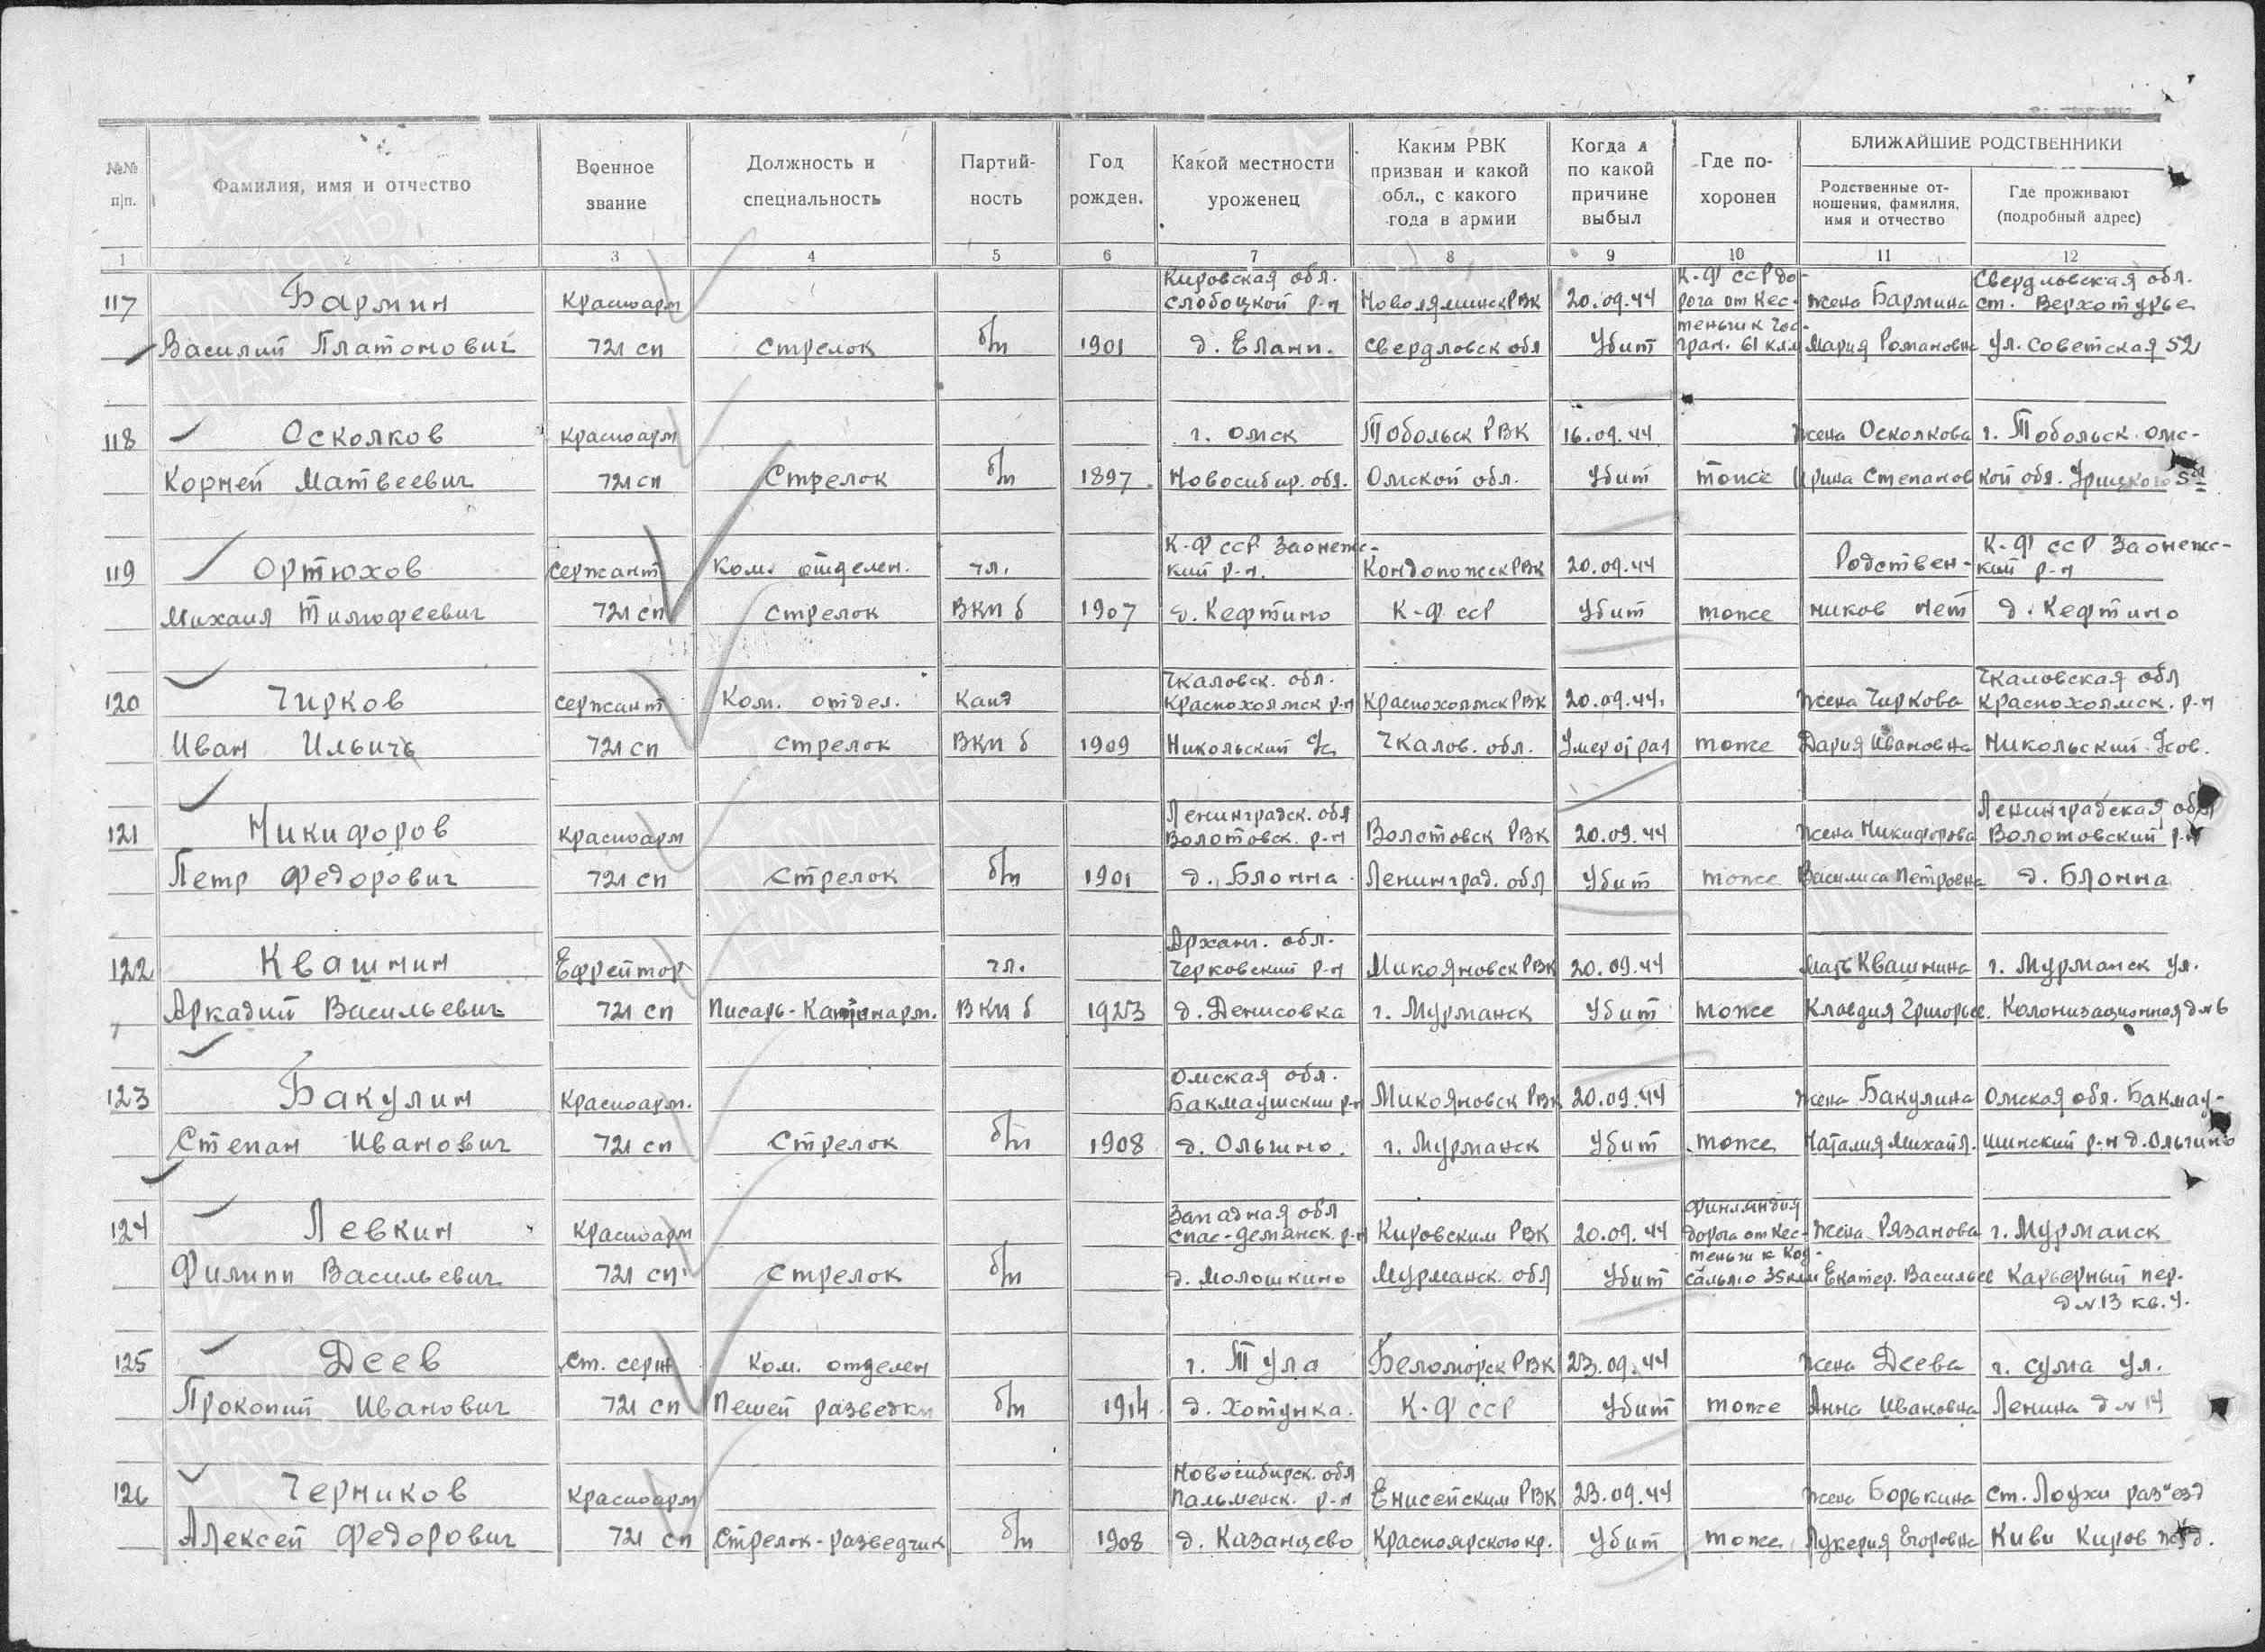 №№ п/п.
Фамилия, имя и отчество
Военное звание
Должность и специальность
Партий-ность
Год рожден.
Какой местности уроженец
Каким РВК призван и какой обл., с какого года в армии
Когда и по какой причине выбыл
Где по-хоронен
БЛИЖАЙШИЕ РОДСТВЕННИКИ
Родственные от-ношения, фамилия, имя и отчество
Где проживают (подробный адрес)
1 2 3 4 5 6 7 8 9 10 11 12
Кировская обл. К-Ф ССР до- Свердловская обл.
117 Бармин Красноарм Слободкой р-н НоволялинскРВК 20.09.44 рога от Кес- жена Бармина ст. Верхотурье
теньги к Гос-
Василий Платонович 721 сп Стрелок б/п 1901 д. Елань. Свердловск обл Убит гран. 61 клм Мария Романовна ул. Советская 52
118 Осколков Красноарм г. Омск Тобольск РВК 16.09.44 жена Осколкова г. Тобольск. Омс-
Корней Матвеевич 721 сп Стрелок б/п 1897 Новосибир. обл. Омской обл. Убит тоже Ирина Степанов кой обл. Урицкого
К-Ф ССР Заонежс- К-Ф ССР Заонежс-
119 Ортюхов Сержант Ком. отделен. чл. кий р-н. КондопожскРВК 20.09.44 Родствен- кий р-н
Михаил Тимофеевич 721 сп Стрелок ВКП б 1907 д. Кефтино К-Ф ССР Убит тоже ников нет д. Кефтино
Чкаловск. обл. Чкаловская обл
120 Чирков Сержант Ком. отдел. Канд Краснохолмск р-н КраснохолмскРВК 20.09.44. жена Чиркова Краснохолмск. р-н
Иван Ильичь 721 сп Стрелок ВКП б 1909 Никольский Чкалов. обл. Умер от ран тоже Дария Ивановна Никольский
Ленинградск. обл Ленинградская обл
121 Никифоров Красноарм Волотовск. р-н Волотовск РВК 20.09.44 жена Никифорова Волотовский р-н
Петр Федорович 721 сп Стрелок б/п 1901 д. Блонна Ленинград. обл Убит тоже Василиса Петровна д. Блонна
Арханг. обл.
122 Квашнин Ефрейтор чл. Черковский р-н Микояновск РВК 20.09.44 Мать Квашнина г. Мурманск ул.
Аркадий Васильевич 721 сп Писарь- ВКП б 1923 д. Денисовка г. Мурманск Убит тоже Клавдия Григорьев. Колонизационная д№6
Омская обл.
123 Бакулин Красноарм. Бакмаушский р-н Микояновск РВК 20.09.44 жена Бакулина Омская обл. Бакмау-
Степан Иванович 721 сп Стрелок б/п 1908 д. Ольгино. г. Мурманск Убит тоже Наталия Михайл. шинский р-н д. Ольгино
Западная обл Финляндия
124 Левкин Красноарм Спас-Деманск. р-н Кировским РВК 20.09.44 дорога от Кес- жена Рязанова г. Мурманск
теньги к Коу-
Филипп Васильевич 721 сп Стрелок б/п д. Молошкино Мурманск. обл Убит сальмо 35клм Екатер. Васильев Карьерный пер.
д№13 кв. 4.
125 Деев Ст. серж Ком. отделен г. Тула Беломорск РВК 23.09.44 жена Деева г. Сума ул.
Прокопий Иванович 721 сп Пешей разведки б/п 1914 д. Хотунка. К-Ф ССР Убит тоже Анна Ивановна Ленина д№14
Новосибирск. обл
126 Черников Красноарм Пальменск. р-н Енисейским РВК 23.09.44 жена Борькина ст. Лоухи раз"езд
Алексей Федорович 721 сп Стрелок-разведчик б/п 1908 д. Казанцево Красноярского кр. Убит тоже Лукерия Егоровна Киви Киров ж.д.